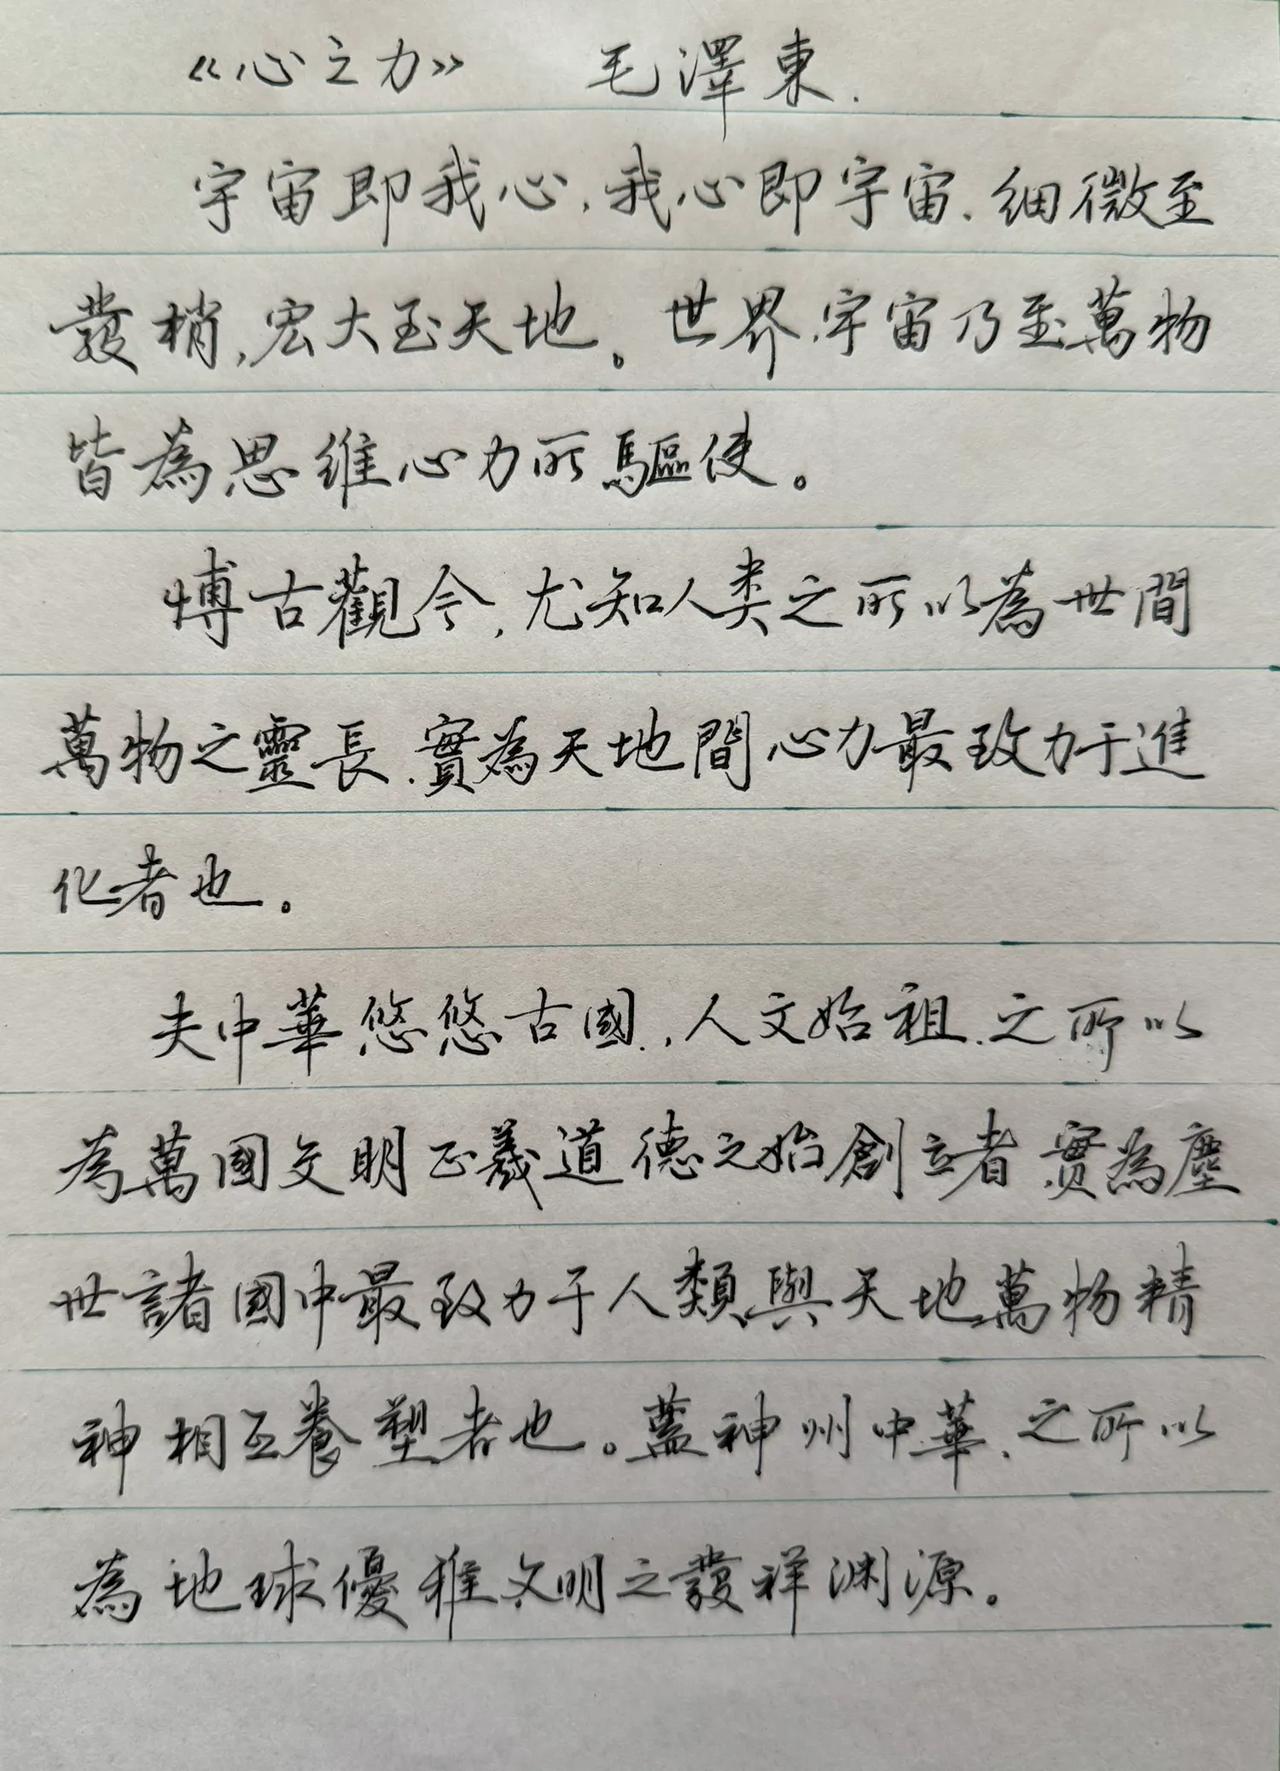 《心之力》 毛澤東.
宇宙即我心,我心即宇宙.細微至
發梢,宏大至天地。世界.宇宙乃至萬物
皆為思維心力所驅使。
博古觀今,尤知人类之所以為世間
萬物之靈長.實為天地間心力最致力于進
化者也。
夫中華悠悠古國.,人文始祖.之所以
為萬國文明正義道德之始創立者.實為塵
世諸國中最致力于人類與天地萬物精
神相互養塑者也。蓋神州中華.之所以
為地球優雅文明之發祥渊源。